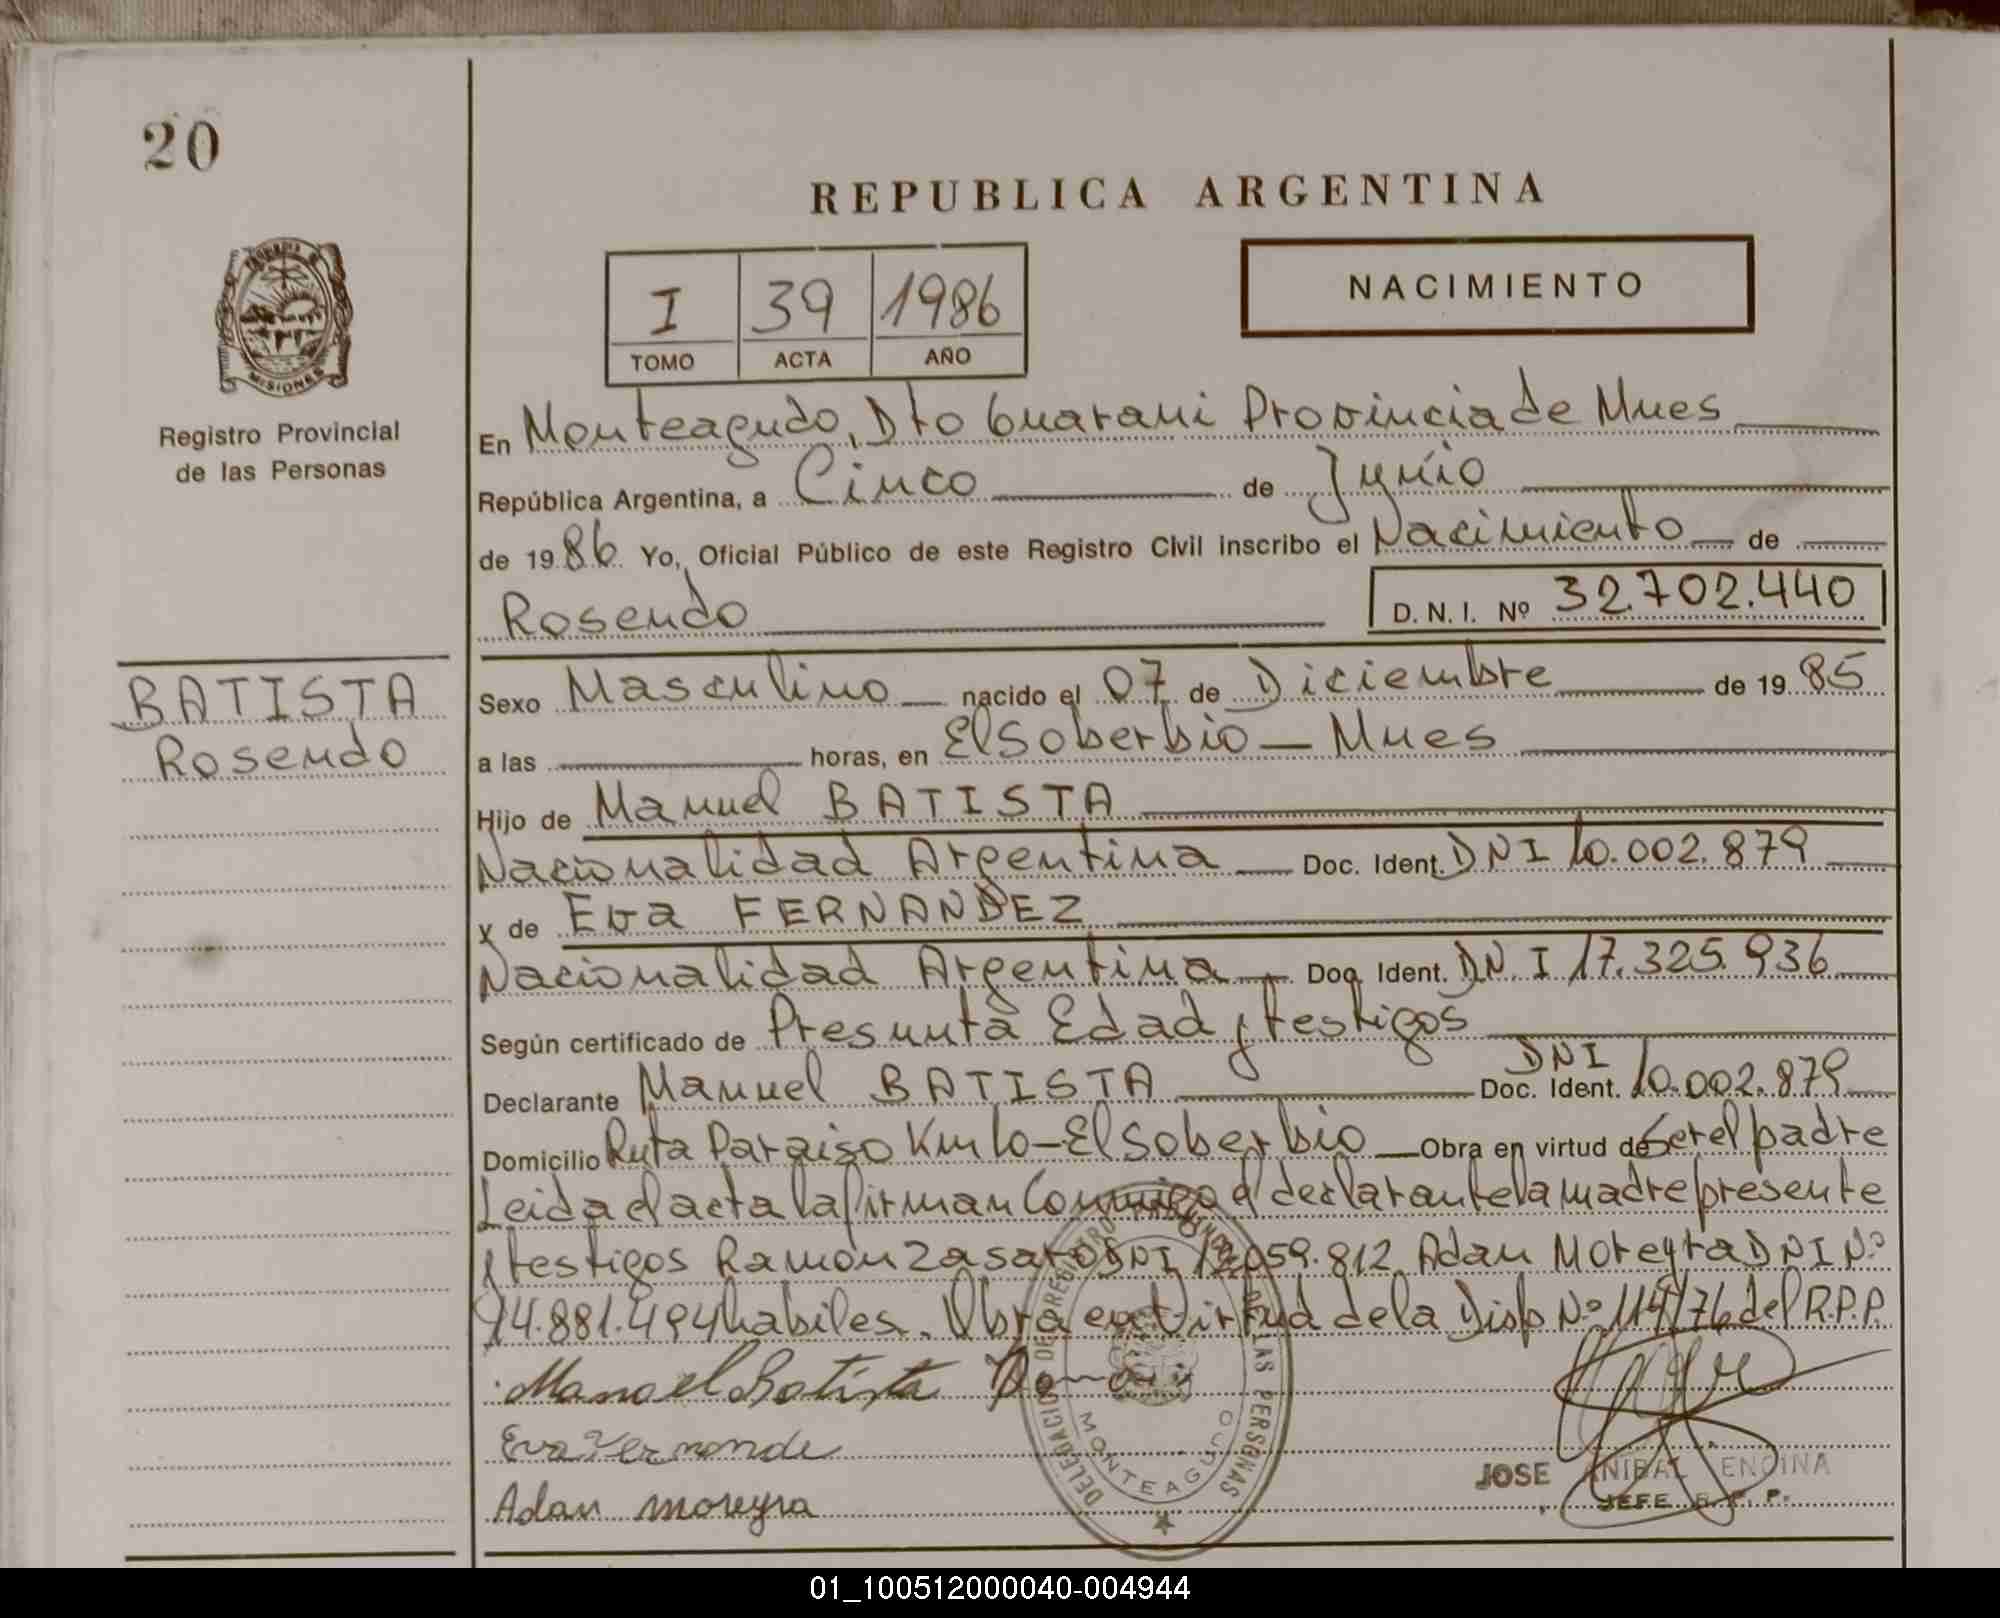 20
REPUBLICA ARGENTINA
I 39 1986
TOMO ACTA AÑO
NACIMIENTO
MISIONES
Registro Provincial
de las Personas
En Monteagudo, Dto Guarani Provincia de Mnes
República Argentina, a Cinco de Junio
de 1986 Yo, Oficial Público de este Registro Civil inscribo el Nacimiento de
Rosendo
D. N. I. Nº 32.702.440
BATISTA
Rosendo
Sexo Masculino nacido el 07 de Diciembre de 1985
a las horas, en El Soberbio - Mnes
Hijo de Manuel BATISTA
Nacionalidad Argentina Doc. Ident. DNI 10.002.879
y de Eva FERNANDEZ
Nacionalidad Argentina Doc. Ident. DN.I 17.325.936
Según certificado de Presunta Edad y testigos
Declarante Manuel BATISTA Doc. Ident. DNI 10.002.879
Domicilio Ruta Paraiso Km 10 - El Soberbio Obra en virtud de Ser el padre
Leida el acta la firman Conmigo el declarante la madre presente
y testigos Ramon DNI Adan Moreyra DNI Nº
14.881.494 habiles. Obra en Virtud de la Disp Nº 114/76 del R.P.P.
Manoel Batista
Eva Fernande
Adan Moreyra
DELEGACION DEL REGISTRO PROVINCIAL DE LAS PERSONAS
MONTEAGUDO
JOSE ANIBAL ENCINA
JEFE R. P. P.
01_100512000040-004944